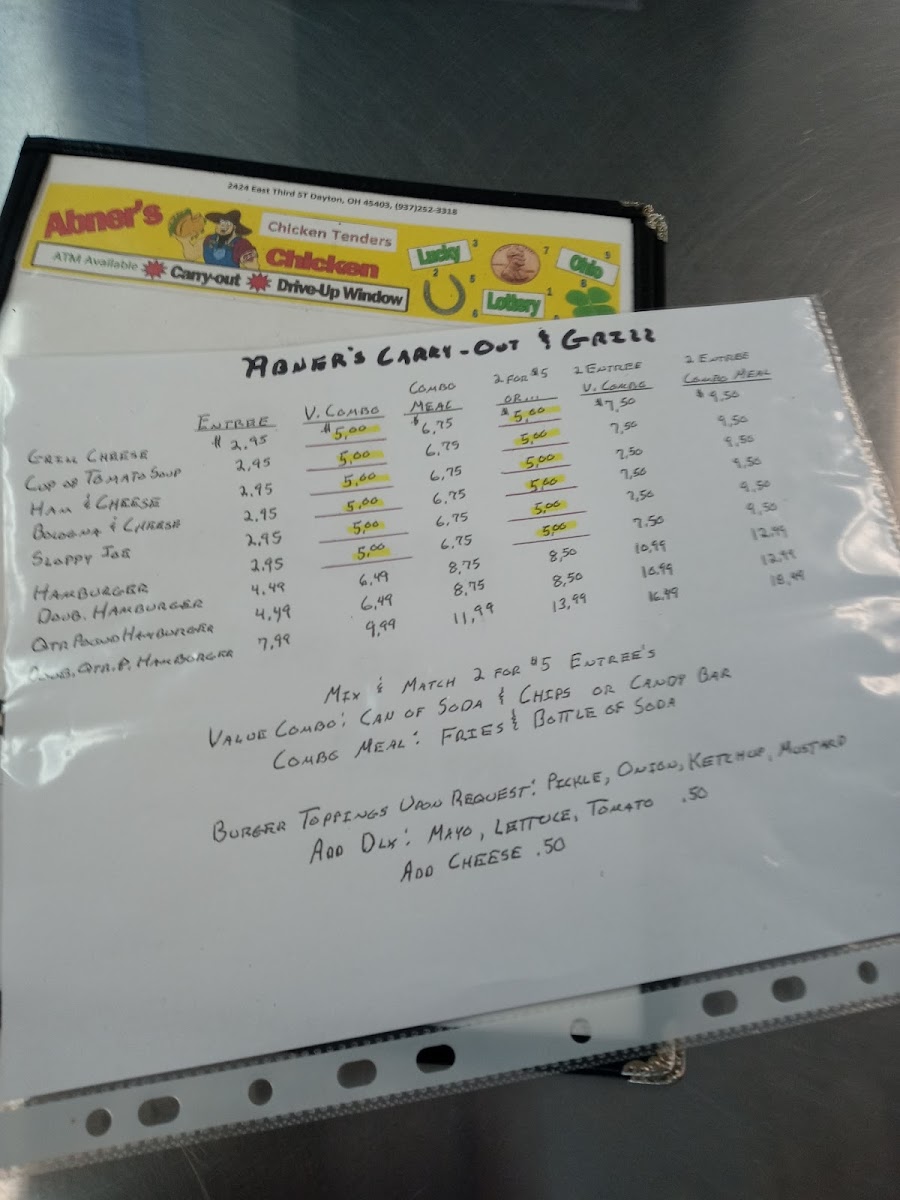 2424 East Third ST Dayton, OH 45403, (937)252-3318
Abner's
Chicken Tenders
Chicken
ATM Available Carry-out Drive-Up Window
Lucky
Ohio
Lottery
3 7 9 2 5 8 6 1
ABNER'S CARRY-OUT & GRILL
ENTREE V. COMBO COMBO MEAL 2 FOR $5 OR... 2 ENTREE V. COMBO 2 ENTREE COMBO MEAL
GRILL CHEESE $2.95 $5.00 $6.75 $5.00 $7.50 $9.50
CUP OF TOMATO SOUP 2.95 5.00 6.75 5.00 7.50 9.50
HAM & CHEESE 2.95 5.00 6.75 5.00 7.50 9.50
BOLOGNA & CHEESE 2.95 5.00 6.75 5.00 7.50 9.50
SLOPPY JOE 2.95 5.00 6.75 5.00 7.50 9.50
HAMBURGER 2.95 5.00 6.75 5.00 7.50 9.50
DOUB. HAMBURGER 4.49 6.49 8.75 8.50 10.99 12.99
QTR POUND HAMBURGER 4.49 6.49 8.75 8.50 10.99 12.99
DOUB. QTR. P. HAMBURGER 7.99 9.99 11.99 13.99 16.49 18.49
MIX & MATCH 2 FOR $5 ENTREE'S
VALUE COMBO: CAN OF SODA & CHIPS OR CANDY BAR
COMBO MEAL: FRIES & BOTTLE OF SODA
BURGER TOPPINGS UPON REQUEST: PICKLE, ONION, KETCHUP, MUSTARD
ADD DLX: MAYO, LETTUCE, TOMATO .50
ADD CHEESE .50